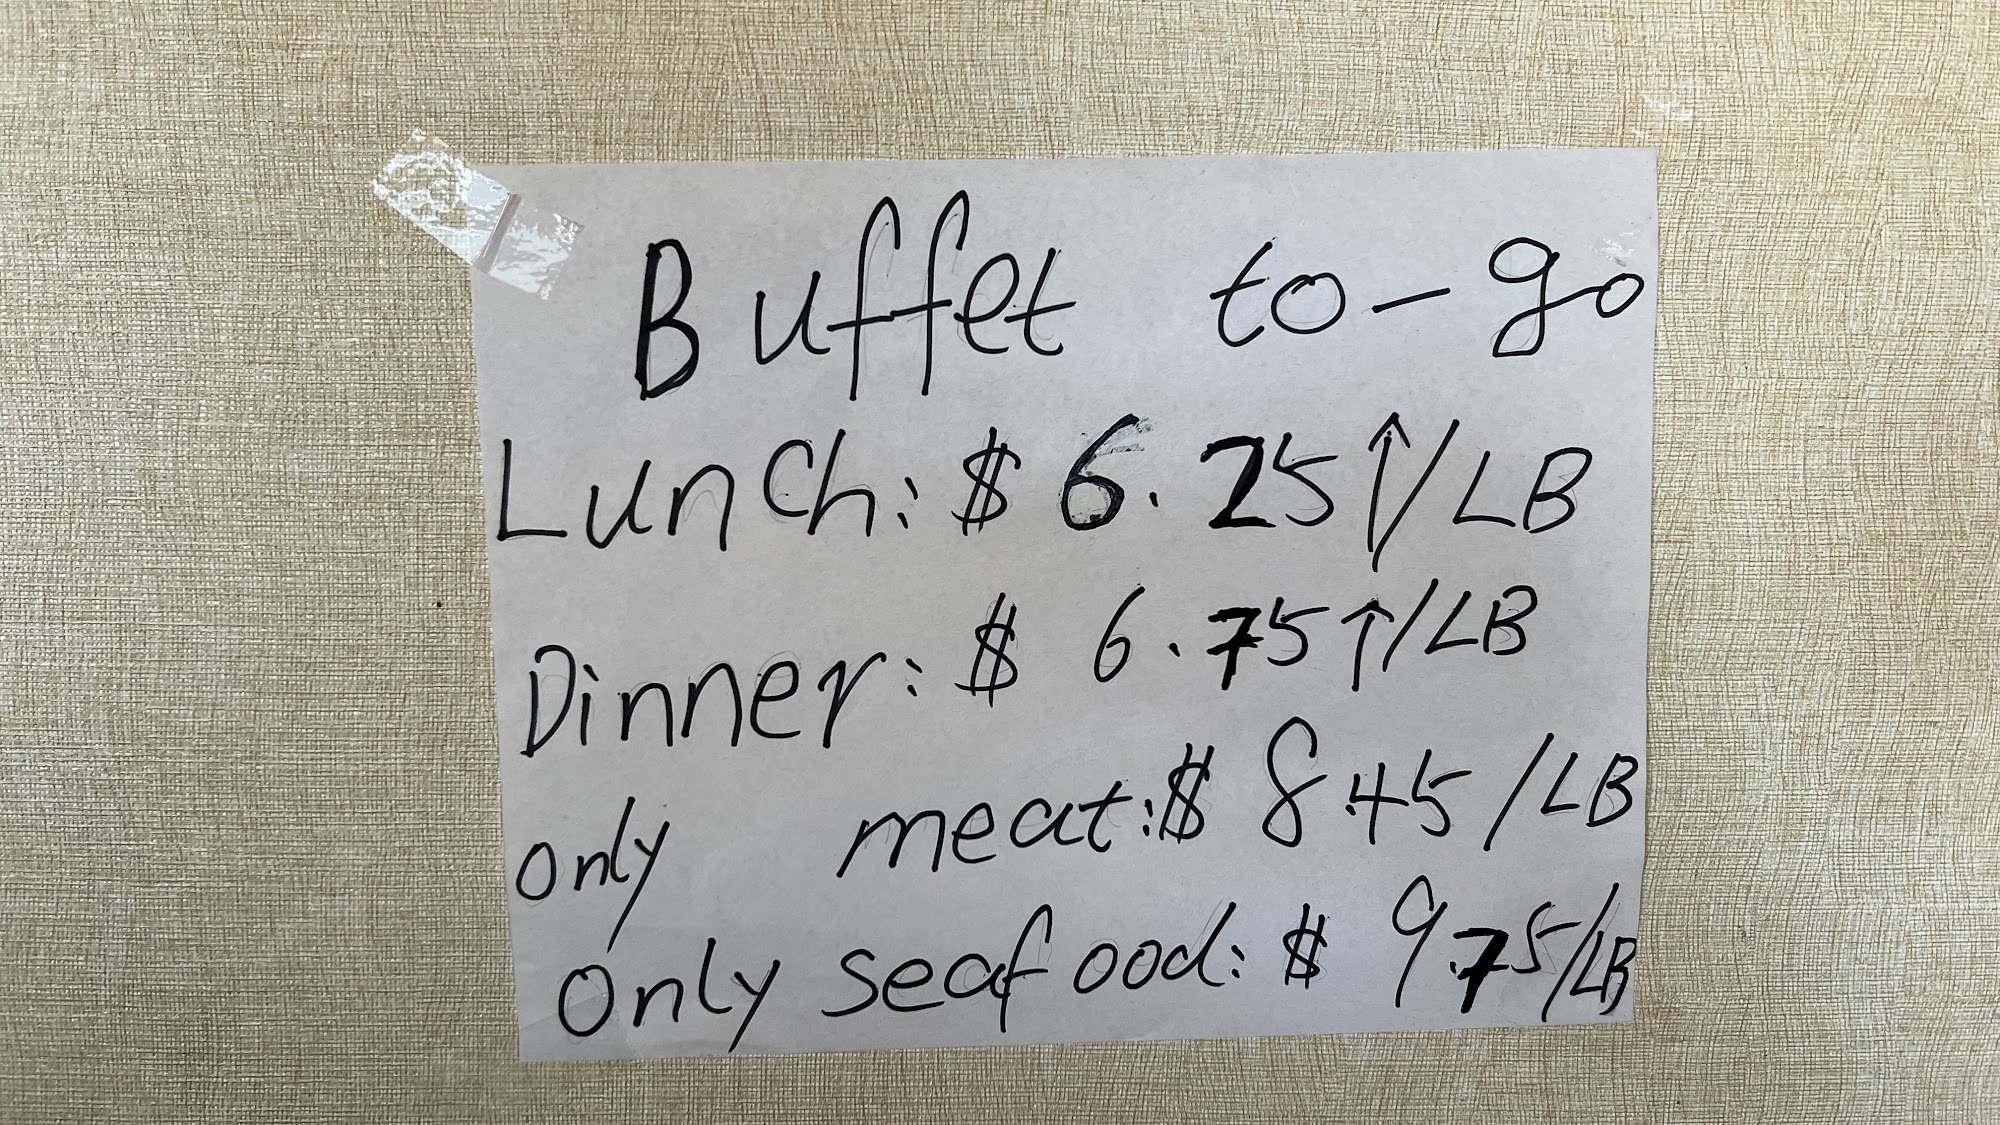 Buffet to-go
Lunch: $ 6.25↑/LB
Dinner: $ 6.75↑/LB
only meat: $ 8.45/LB
Only seafood: $ 9.75/LB